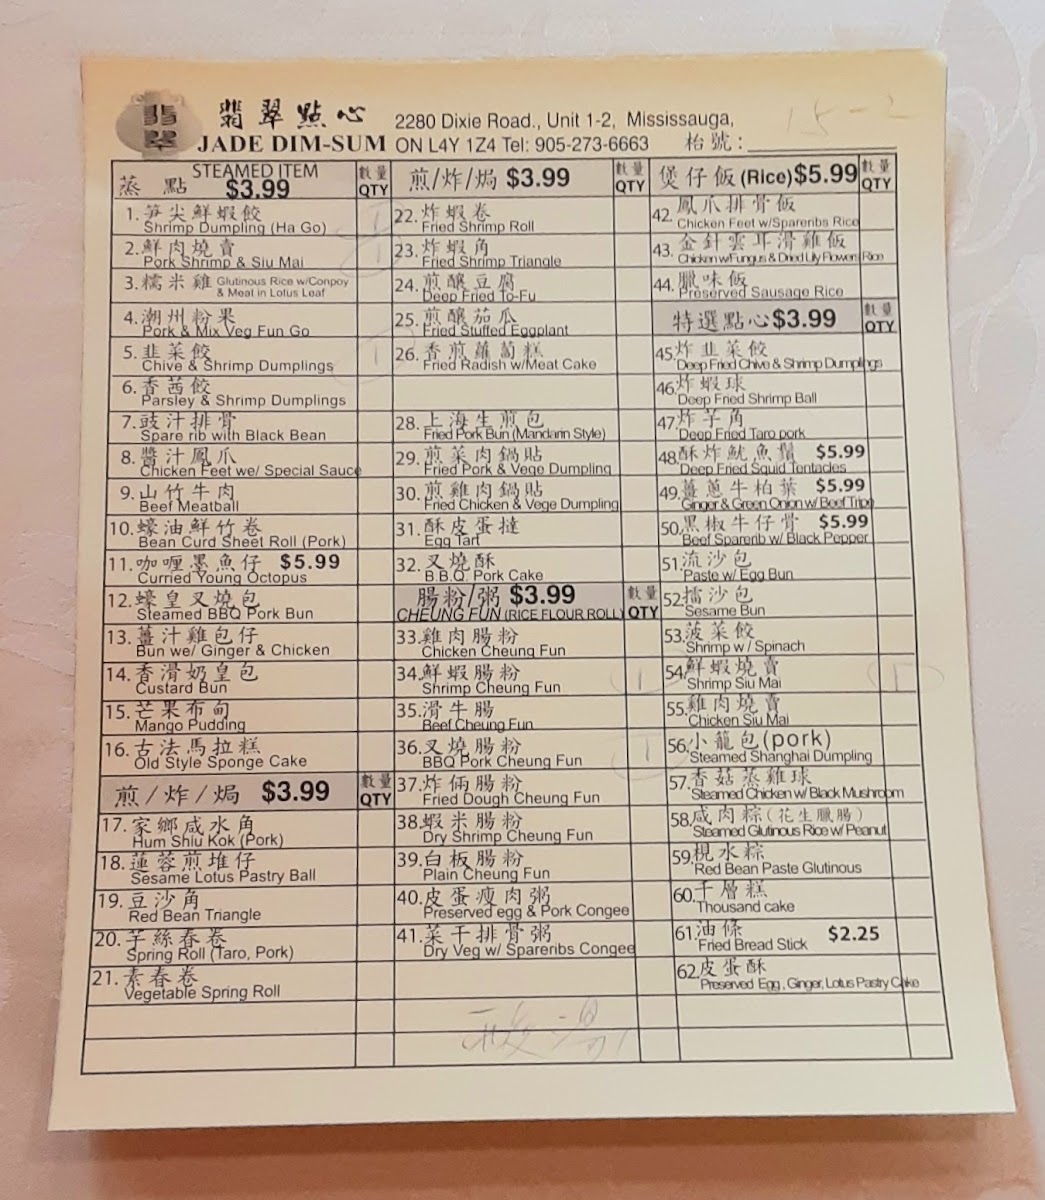 翡翠
翡翠點心
JADE DIM-SUM
2280 Dixie Road., Unit 1-2, Mississauga,
ON L4Y 1Z4 Tel: 905-273-6663
枱號:
15-2
蒸點 STEAMED ITEM $3.99 數量 QTY
1.笋尖鮮蝦餃
Shrimp Dumpling (Ha Go)
2.鮮肉燒賣
Pork Shrimp & Siu Mai
1
3.糯米雞 Glutinous Rice w/Conpoy
& Meat in Lotus Leaf
4.潮州粉果
Pork & Mix Veg Fun Go
5.韭菜餃
Chive & Shrimp Dumplings
1
6.香茜餃
Parsley & Shrimp Dumplings
7.豉汁排骨
Spare rib with Black Bean
8.醬汁鳳爪
Chicken Feet we/ Special Sauce
9.山竹牛肉
Beef Meatball
10.蠔油鮮竹卷
Bean Curd Sheet Roll (Pork)
11.咖喱墨魚仔 $5.99
Curried Young Octopus
12.蠔皇叉燒包
Steamed BBQ Pork Bun
13.薑汁雞包仔
Bun we/ Ginger & Chicken
14.香滑奶皇包
Custard Bun
15.芒果布甸
Mango Pudding
16.古法馬拉糕
Old Style Sponge Cake
煎/炸/焗 $3.99 數量 QTY
17.家鄉咸水角
Hum Shiu Kok (Pork)
18.蓮蓉煎堆仔
Sesame Lotus Pastry Ball
19.豆沙角
Red Bean Triangle
20.芋絲春卷
Spring Roll (Taro, Pork)
21.素春卷
Vegetable Spring Roll
煎/炸/焗 $3.99 數量 QTY
22.炸蝦卷
Fried Shrimp Roll
23.炸蝦角
Fried Shrimp Triangle
24.煎釀豆腐
Deep Fried To-Fu
25.煎釀茄瓜
Fried Stuffed Eggplant
26.香煎蘿蔔糕
Fried Radish w/Meat Cake
28.上海生煎包
Fried Pork Bun (Mandarin Style)
29.煎菜肉鍋貼
Fried Pork & Vege Dumpling
30.煎雞肉鍋貼
Fried Chicken & Vege Dumpling
31.酥皮蛋撻
Egg Tart
32.叉燒酥
B.B.Q. Pork Cake
腸粉/粥 $3.99 數量 QTY
CHEUNG FUN (RICE FLOUR ROLL)
33.雞肉腸粉
Chicken Cheung Fun
34.鮮蝦腸粉
Shrimp Cheung Fun
1
35.滑牛腸
Beef Cheung Fun
36.叉燒腸粉
BBQ Pork Cheung Fun
1
37.炸倆腸粉
Fried Dough Cheung Fun
38.蝦米腸粉
Dry Shrimp Cheung Fun
39.白板腸粉
Plain Cheung Fun
40.皮蛋瘦肉粥
Preserved egg & Pork Congee
41.菜干排骨粥
Dry Veg w/ Spareribs Congee
煲仔飯(Rice)$5.99 數量 QTY
42.鳳爪排骨飯
Chicken Feet w/Spareribs Rice
43.金針雲耳滑雞飯
Chicken w/Fungus & Dried Lily Flowers Rice
44.臘味飯
Preserved Sausage Rice
特選點心$3.99 數量 QTY
45.炸韭菜餃
Deep Fried Chive & Shrimp Dumplings
46.炸蝦球
Deep Fried Shrimp Ball
47.炸芋角
Deep Fried Taro pork
48.酥炸魷魚鬚 $5.99
Deep Fried Squid Tentacles
49.薑蔥牛柏葉 $5.99
Ginger & Green Onion w/ Beef Tripe
50.黑椒牛仔骨 $5.99
Beef Sparerib w/ Black Pepper
51.流沙包
Paste w/ Egg Bun
52.擂沙包
Sesame Bun
53.菠菜餃
Shrimp w / Spinach
54.鮮蝦燒賣
Shrimp Siu Mai
1
55.雞肉燒賣
Chicken Siu Mai
56.小籠包(pork)
Steamed Shanghai Dumpling
57.香菇蒸雞球
Steamed Chicken w/ Black Mushroom
58.咸肉粽(花生臘腸)
Steamed Glutinous Rice w/ Peanut
59.梘水粽
Red Bean Paste Glutinous
60.千層糕
Thousand cake
61.油條 $2.25
Fried Bread Stick
62.皮蛋酥
Preserved Egg , Ginger, Lotus Pastry Cake
酸湯